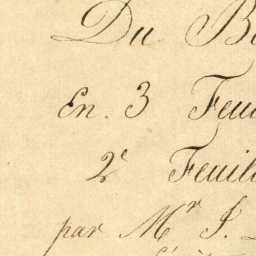 Du
En. 3 Feu
2e Feuil
par Mr J.